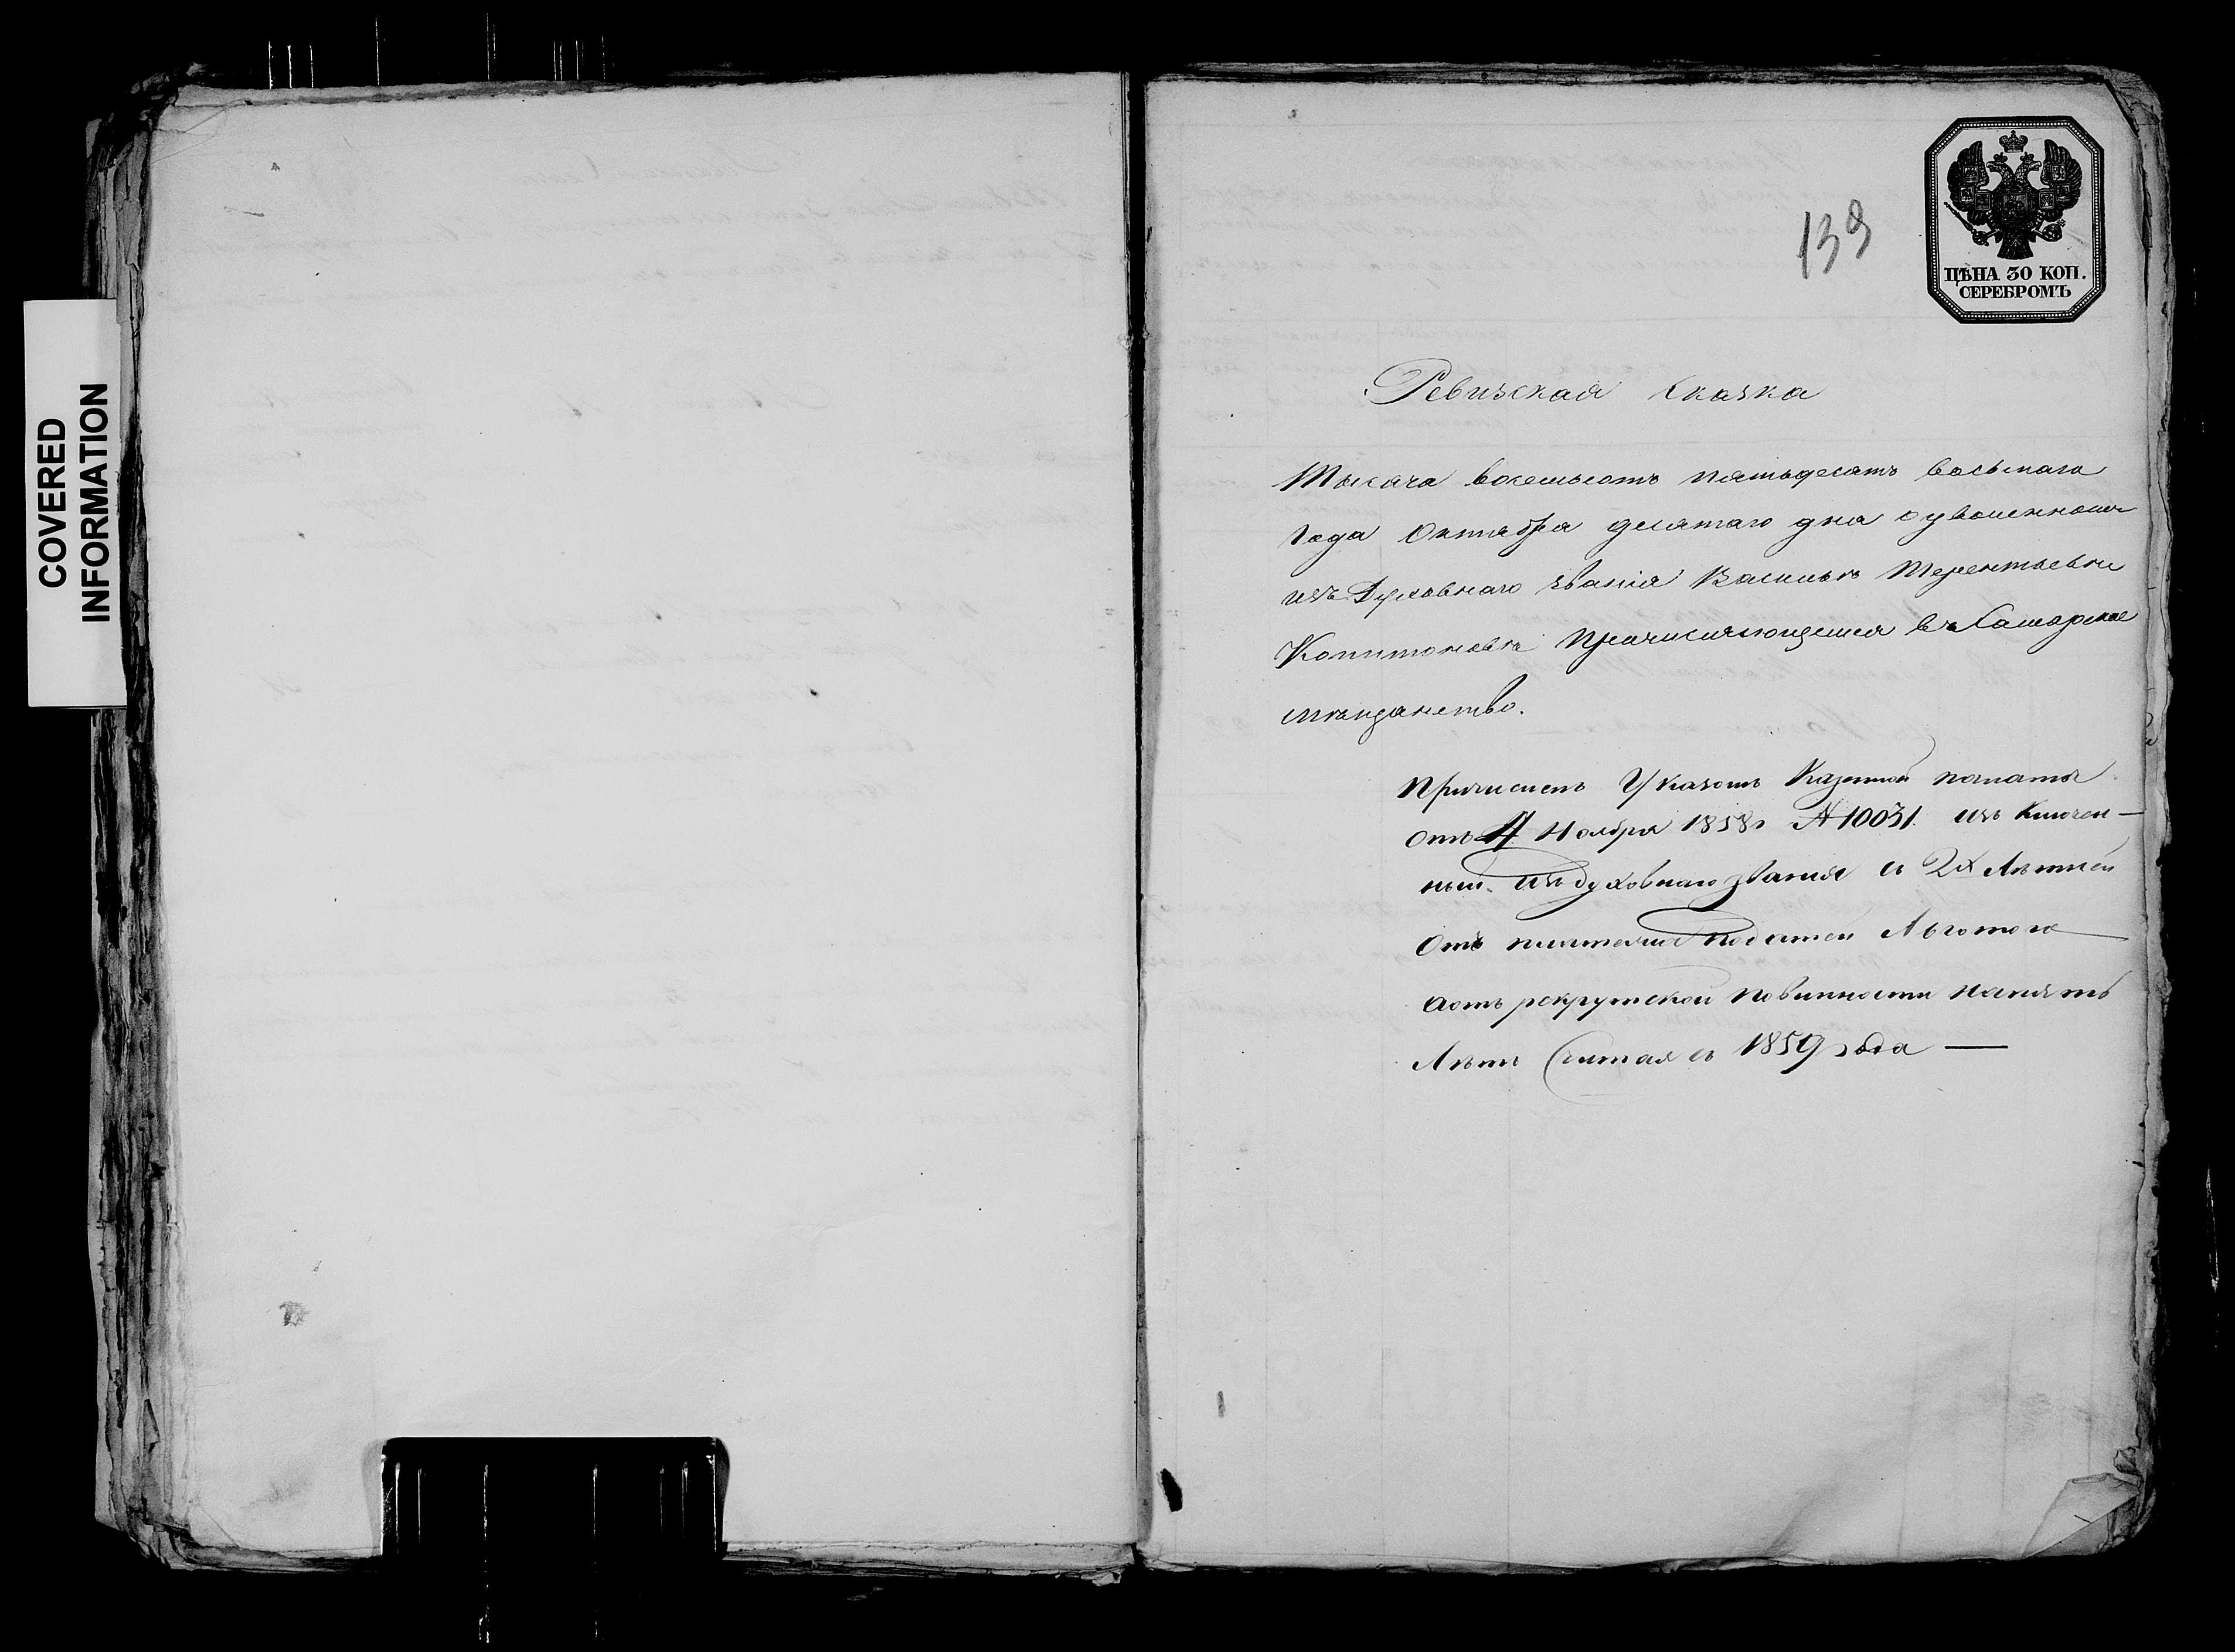 COVERED
INFORMATION
139
ЦѢНА 30 КОП.
СЕРЕБРОМЪ
Ревизская Сказка
Тысяча восемьсотъ пятьдесятъ восьмаго
года Октября десятаго дня о уволенномъ
изъ Духовнаго званія Васильѣ Терентьевѣ
Копитоновѣ причисляющемся въ Самарское
мѣщанство.
Причисленъ Указомъ Казенной палаты
отъ Ноября 1858г № 10031. изъ Ключен-
ныхъ изъ духовнаго званія съ 2х Лѣтней
отъ платежа податей Льготою
а отъ рекрутской повинности на пять
Лѣтъ Считая съ 1859 года —